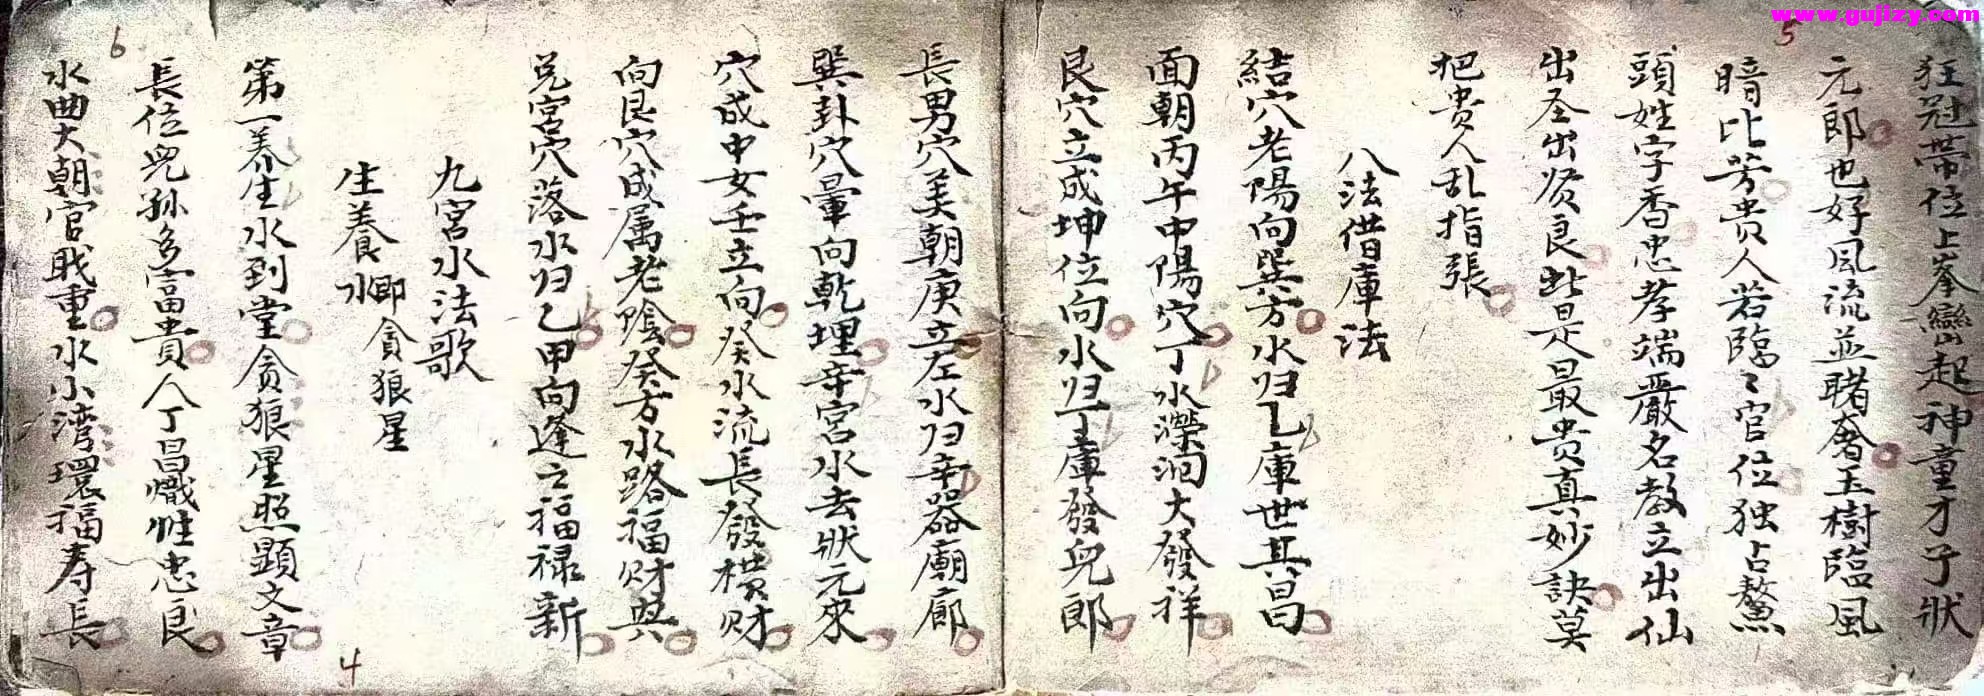 www.gujizy.com
5
狂冠帶位上峯巒起神童才子狀
元郎也好風流並賭奢玉樹臨風
暗比芳貴人若臨〻官位独占鰲
頭姓字香忠孝端嚴名教立出仙
出圣出贤良此是最贵真妙訣莫
把贵人乱指張
八法借庫法
結穴老陽向巽方水归乙庫世其昌
面朝丙午中陽穴丁水濚洄大發祥
艮穴立成坤位向水归丁庫發兒郎
長男穴美朝庚立左水归辛器廟廊
巽卦穴暈向乾埋辛宮水去狀元來
穴成中女壬立向癸水流長發横财
向艮穴成属老陰癸方水路福财興
兌宮穴落水归乙甲向逢之福禄新
九宮水法歌
生養水 卿貪狼星
第一养生水到堂贪狼星照顕文章
長位兒孫多富貴人丁昌熾性忠良
水曲大朝官戝重水小湾環福寿長
6
4